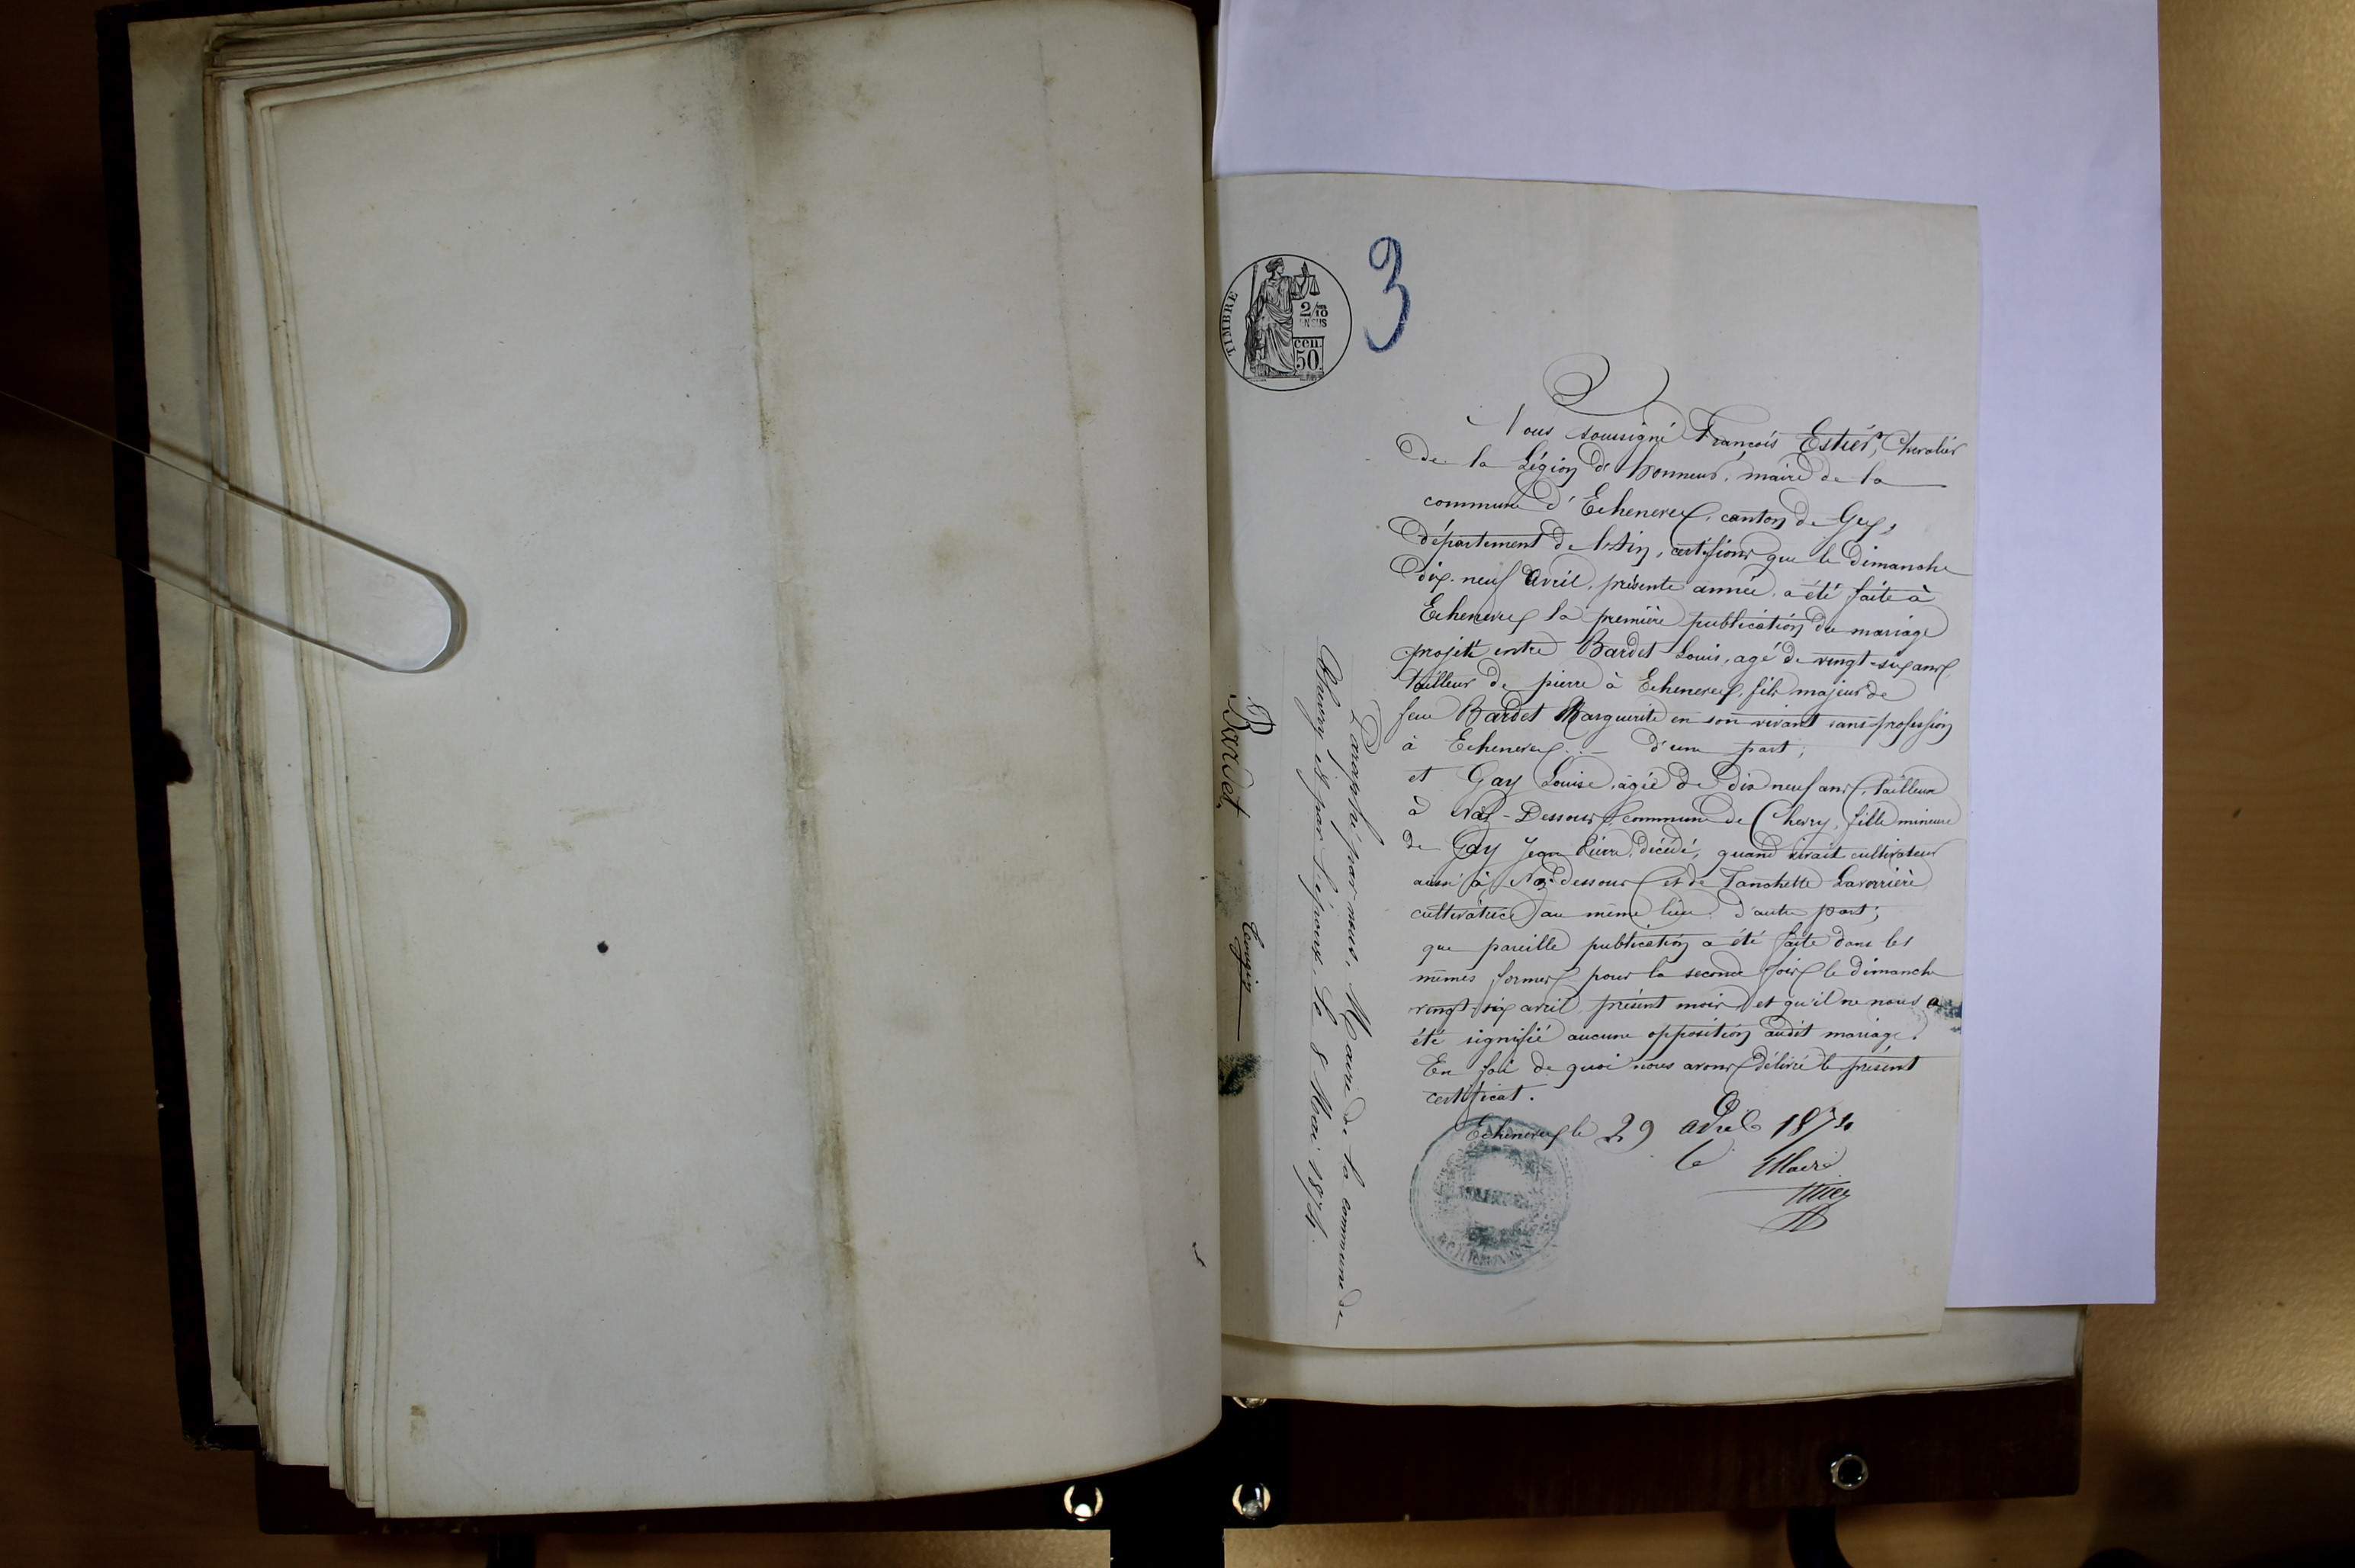 TIMBRE
2/10
EN SUS
50 cen.
3
Nous soussigné François Estier, Chevalier
de la Légion d'honneur, maire de la
commune d'Echenevex, canton de Gex,
département de l'Ain, certifions que le dimanche
dix-neuf Avril, présente année, a été faite à
Echenevex la première publication du mariage
projeté entre Bardet Louis, agé de vingt-six ans,
tailleur de pierre à Echenevex, fils majeur de
feue Bardet Marguerite en son vivant sans profession
à Echenevex. — d'une part;
et Gay Louise, agée de dix neuf ans, tailleuse
à Naz-Dessous, commune de Chevry, fille mineure
de Gay Jean Pierre, décédé, quand vivait cultivateur
aussi à Naz-dessous et de Tanchette Laverrière
cultivatrice au même lieu d'autre part;
que pareille publication a été faite dans les
mêmes formes pour la seconde fois le dimanche
vingt-six avril présent mois et qu'il ne nous a
été signifié aucune opposition audit mariage.
En foi de quoi nous avons délivré le présent
certificat.
Echenevex le 29 avril 1874
le Maire
Paraphé par nous, Maire de la commune de
Chevry et par l'époux. Le 8 Mai 1874.
Bardet